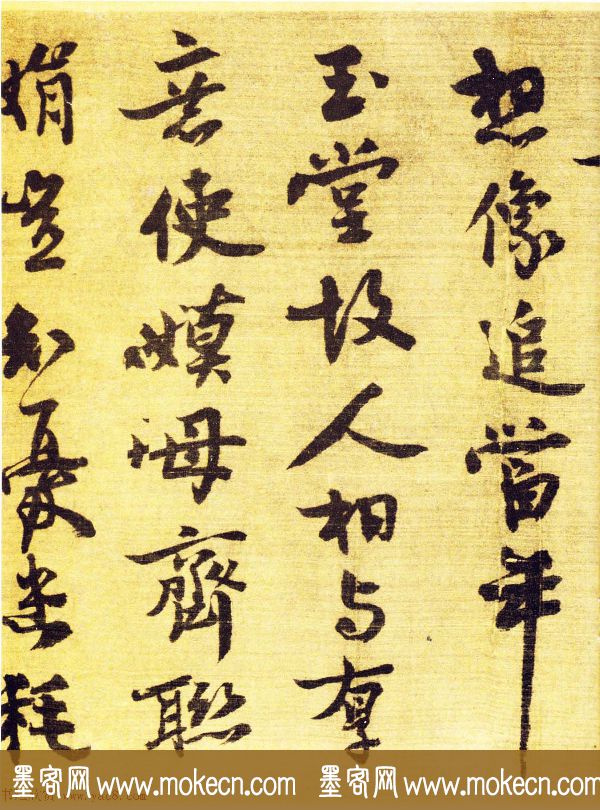 想像追當年
玉堂故人相与厚
意使嫫母齊聯
娟豈知憂患耗
墨客网 www.mokecn.com 墨客网 www.mokecn.com